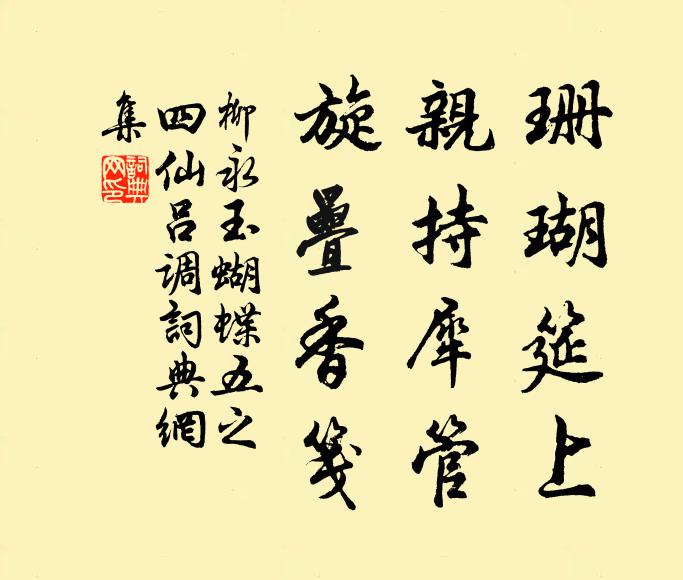 珊瑚筵上
親持犀管
旋疊香箋
柳永玉蝴蝶五之
四仙呂调詞典網
集
詞典網印